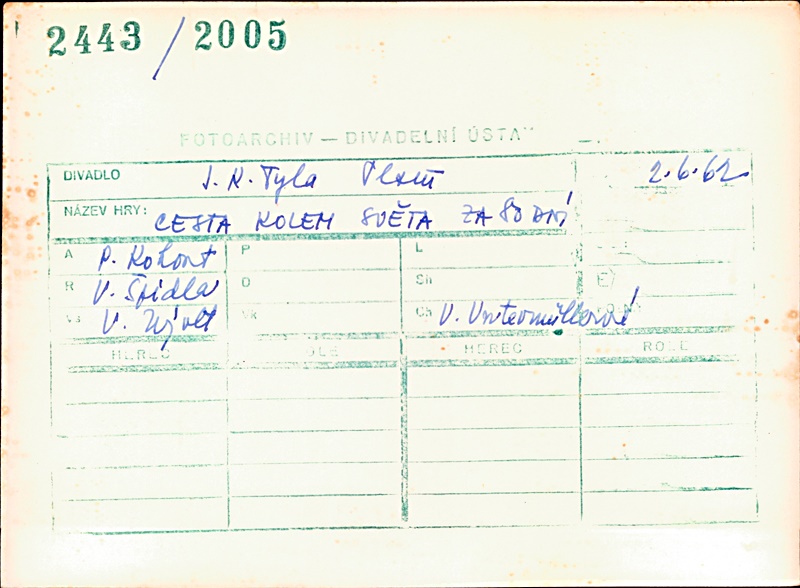 2443/2005
FOTOARCHIV — DIVADELNÍ ÚSTAV
DIVADLO J. K. Tyla Plzeň 2.6.62
NÁZEV HRY: CESTA KOLEM SVĚTA ZA 80 DNÍ
A P. Kohout P L
R V. Špidla D Sh
V. Vk Ch V. Untermüllerová
HEREC ROLE HEREC ROLE